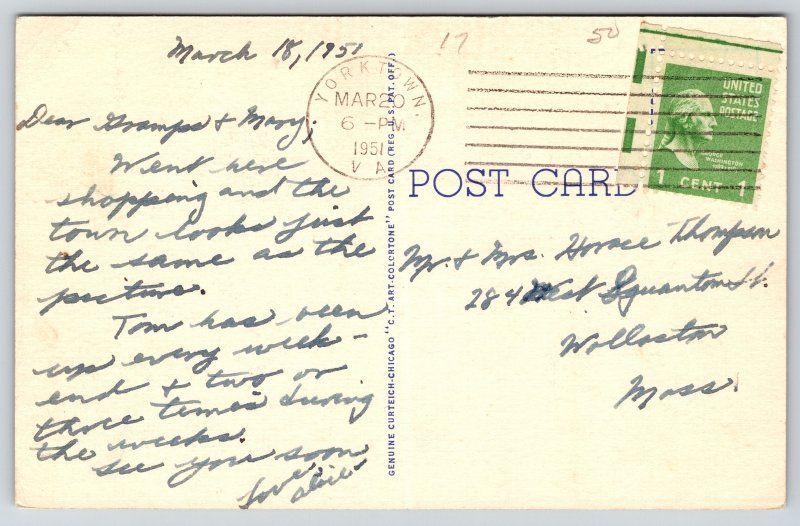 March 18, 1951
17
50
YORKTOWN,
MAR 20
6 - PM
1951
VA
UNITED
STATES
POSTAGE
GEORGE
WASHINGTON
1 CENT 1
POST CARD
Dear Gramps & Mary,
Went here
shopping and the
town looks just
the same as the
picture.
Tom has been
up every week-
end & two or
three times during
the weeks.
See you soon
Love
Alice
GENUINE CURTEICH-CHICAGO "C.T. ART-COLORTONE" POST CARD (REG. U.S. PAT. OFF.)
Mr. & Mrs. Horace Thompson
284 West Squantom St.
Wollaston
Mass.